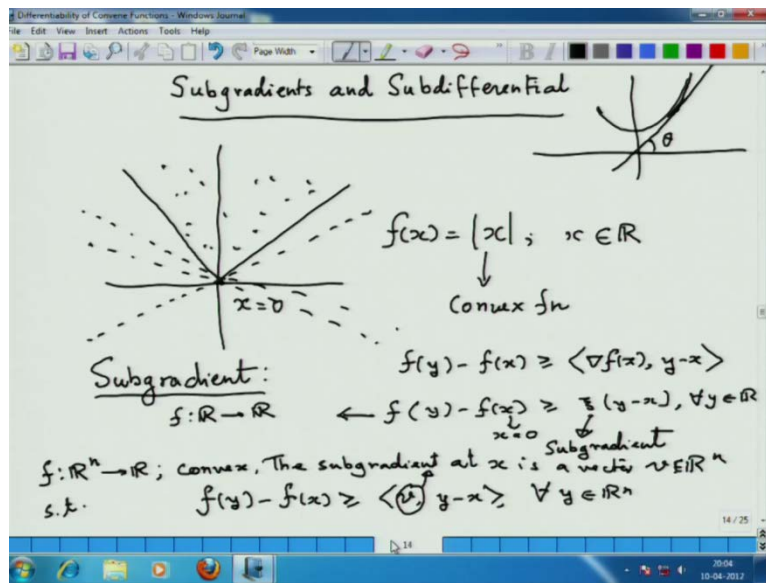 Differentiability of Convene Functions - Windows Journal
File Edit View Insert Actions Tools Help
Page Width
Subgradients and Subdifferential
θ
f(x) = |x| ; x ∈ ℝ
x=0
Convex fn
f(y) - f(x) ≥ ⟨∇f(x), y-x⟩
Subgradient:
f: ℝ → ℝ ← f(y) - f(x) ≥ ξ(y-x), ∀y ∈ ℝ
x=0
Subgradient
f: ℝⁿ → ℝ ; convex, The subgradient at x is a vector v ∈ ℝⁿ
s.t. f(y) - f(x) ≥ ⟨v, y-x⟩ ∀ y ∈ ℝⁿ
14 / 25
14
20:04
10-04-2012